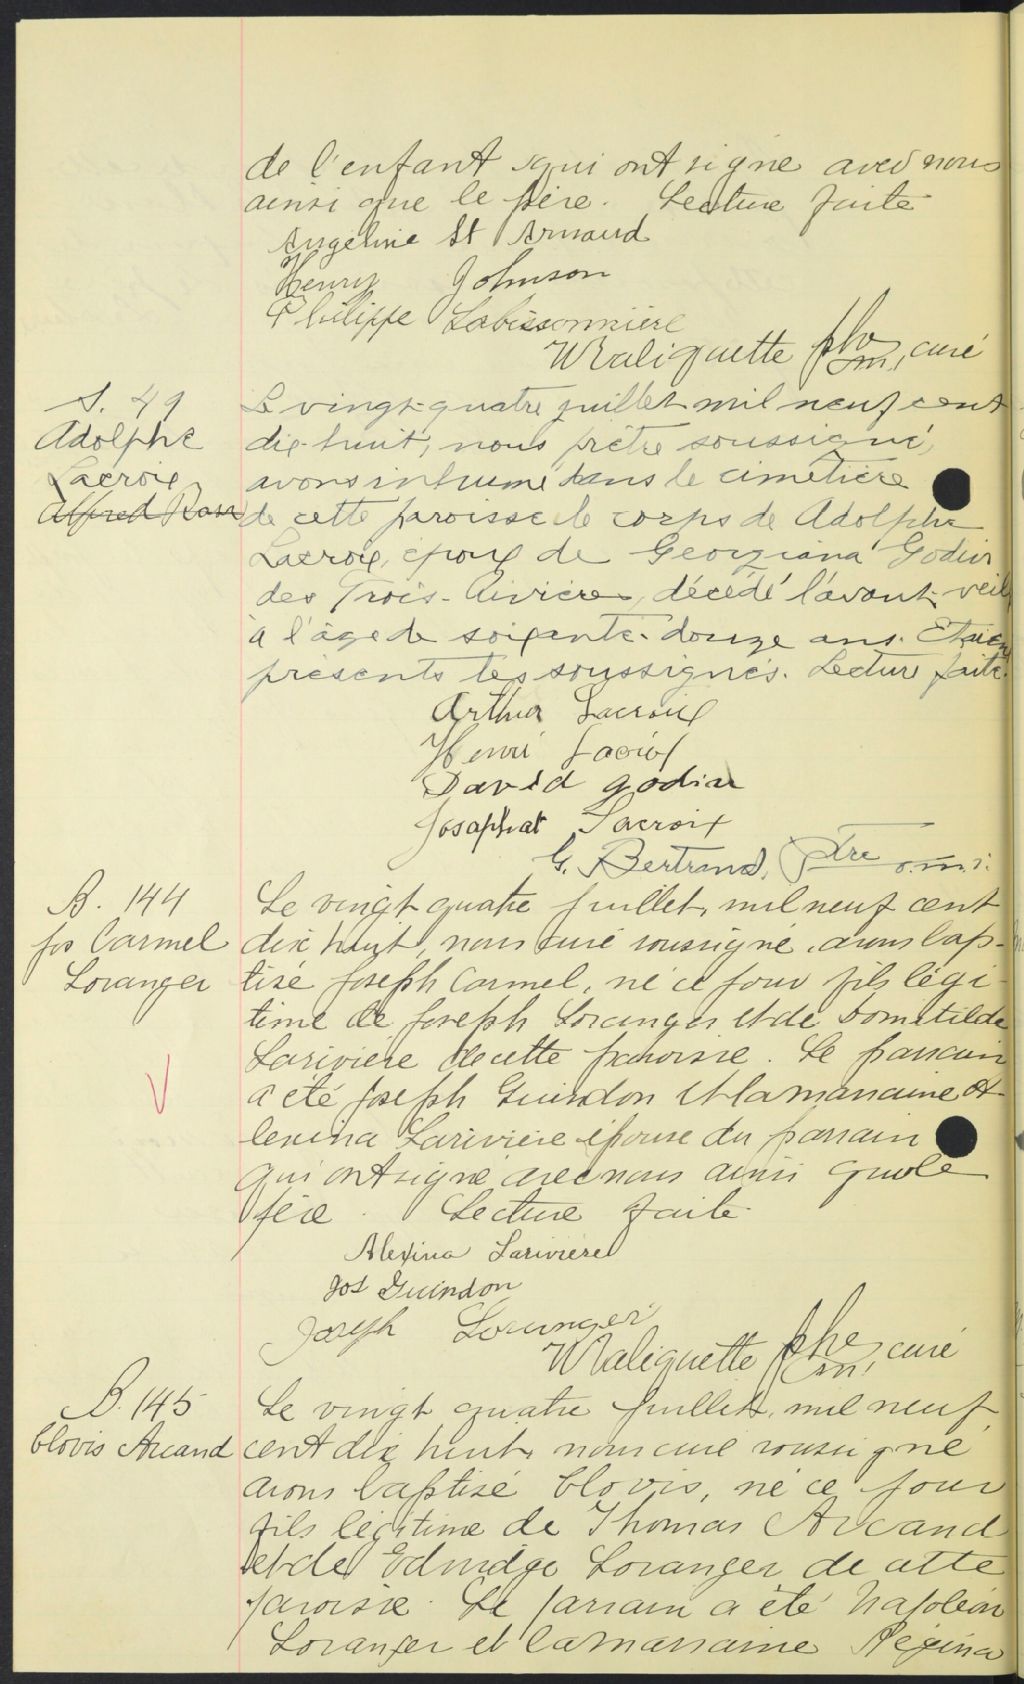 de l'enfant qui ont signé avec nous
ainsi que le père. Lecture faite
Angéline St Arnaud
Henry Johnson
Philippe Labissonnière
Maliquette ptre curé
o.m.i.
S. 49
Adolphe
Lacroix
Alfred Ross
Le vingt-quatre juillet mil neuf cent
dix-huit, nous prêtre soussigné,
avons inhumé dans le cimetière
de cette paroisse le corps de Adolphe
Lacroix, époux de Georgiana Godin
des Trois-Rivières, décédé l'avant-veill
à l'âge de soixante-douze ans. Etaien
présents les soussignés. Lecture faite.
Arthur Lacroix
Henri Lacroix
David Godin
Josaphat Lacroix
G. Bertrand, Ptre o.m.i.
B. 144
Jos Carmel
Loranger
Le vingt quatre juillet, mil neuf cent
dix huit, nous curé soussigné avons bap-
tisé Joseph Carmel, né ce jour fils légi-
time de Joseph Loranger et de Domitilde
Larivière de cette paroisse. Le parrain
a été Joseph Guindon et la marraine A-
lexina Larivière épouse du parrain
qui ont signé avec nous ainsi que le
père. Lecture faite.
Alexina Larivière
Jos Guindon
Joseph Loranger
Maliquette ptre curé
o.m.i.
B. 145
Clovis Arcand
Le vingt quatre juillet, mil neuf
cent dix huit, nous curé soussigné
avons baptisé Clovis, né ce jour
fils légitime de Thomas Arcand
et de Edwidge Loranger de cette
paroisse. Le parrain a été Napoléon
Loranger et la marraine Régina